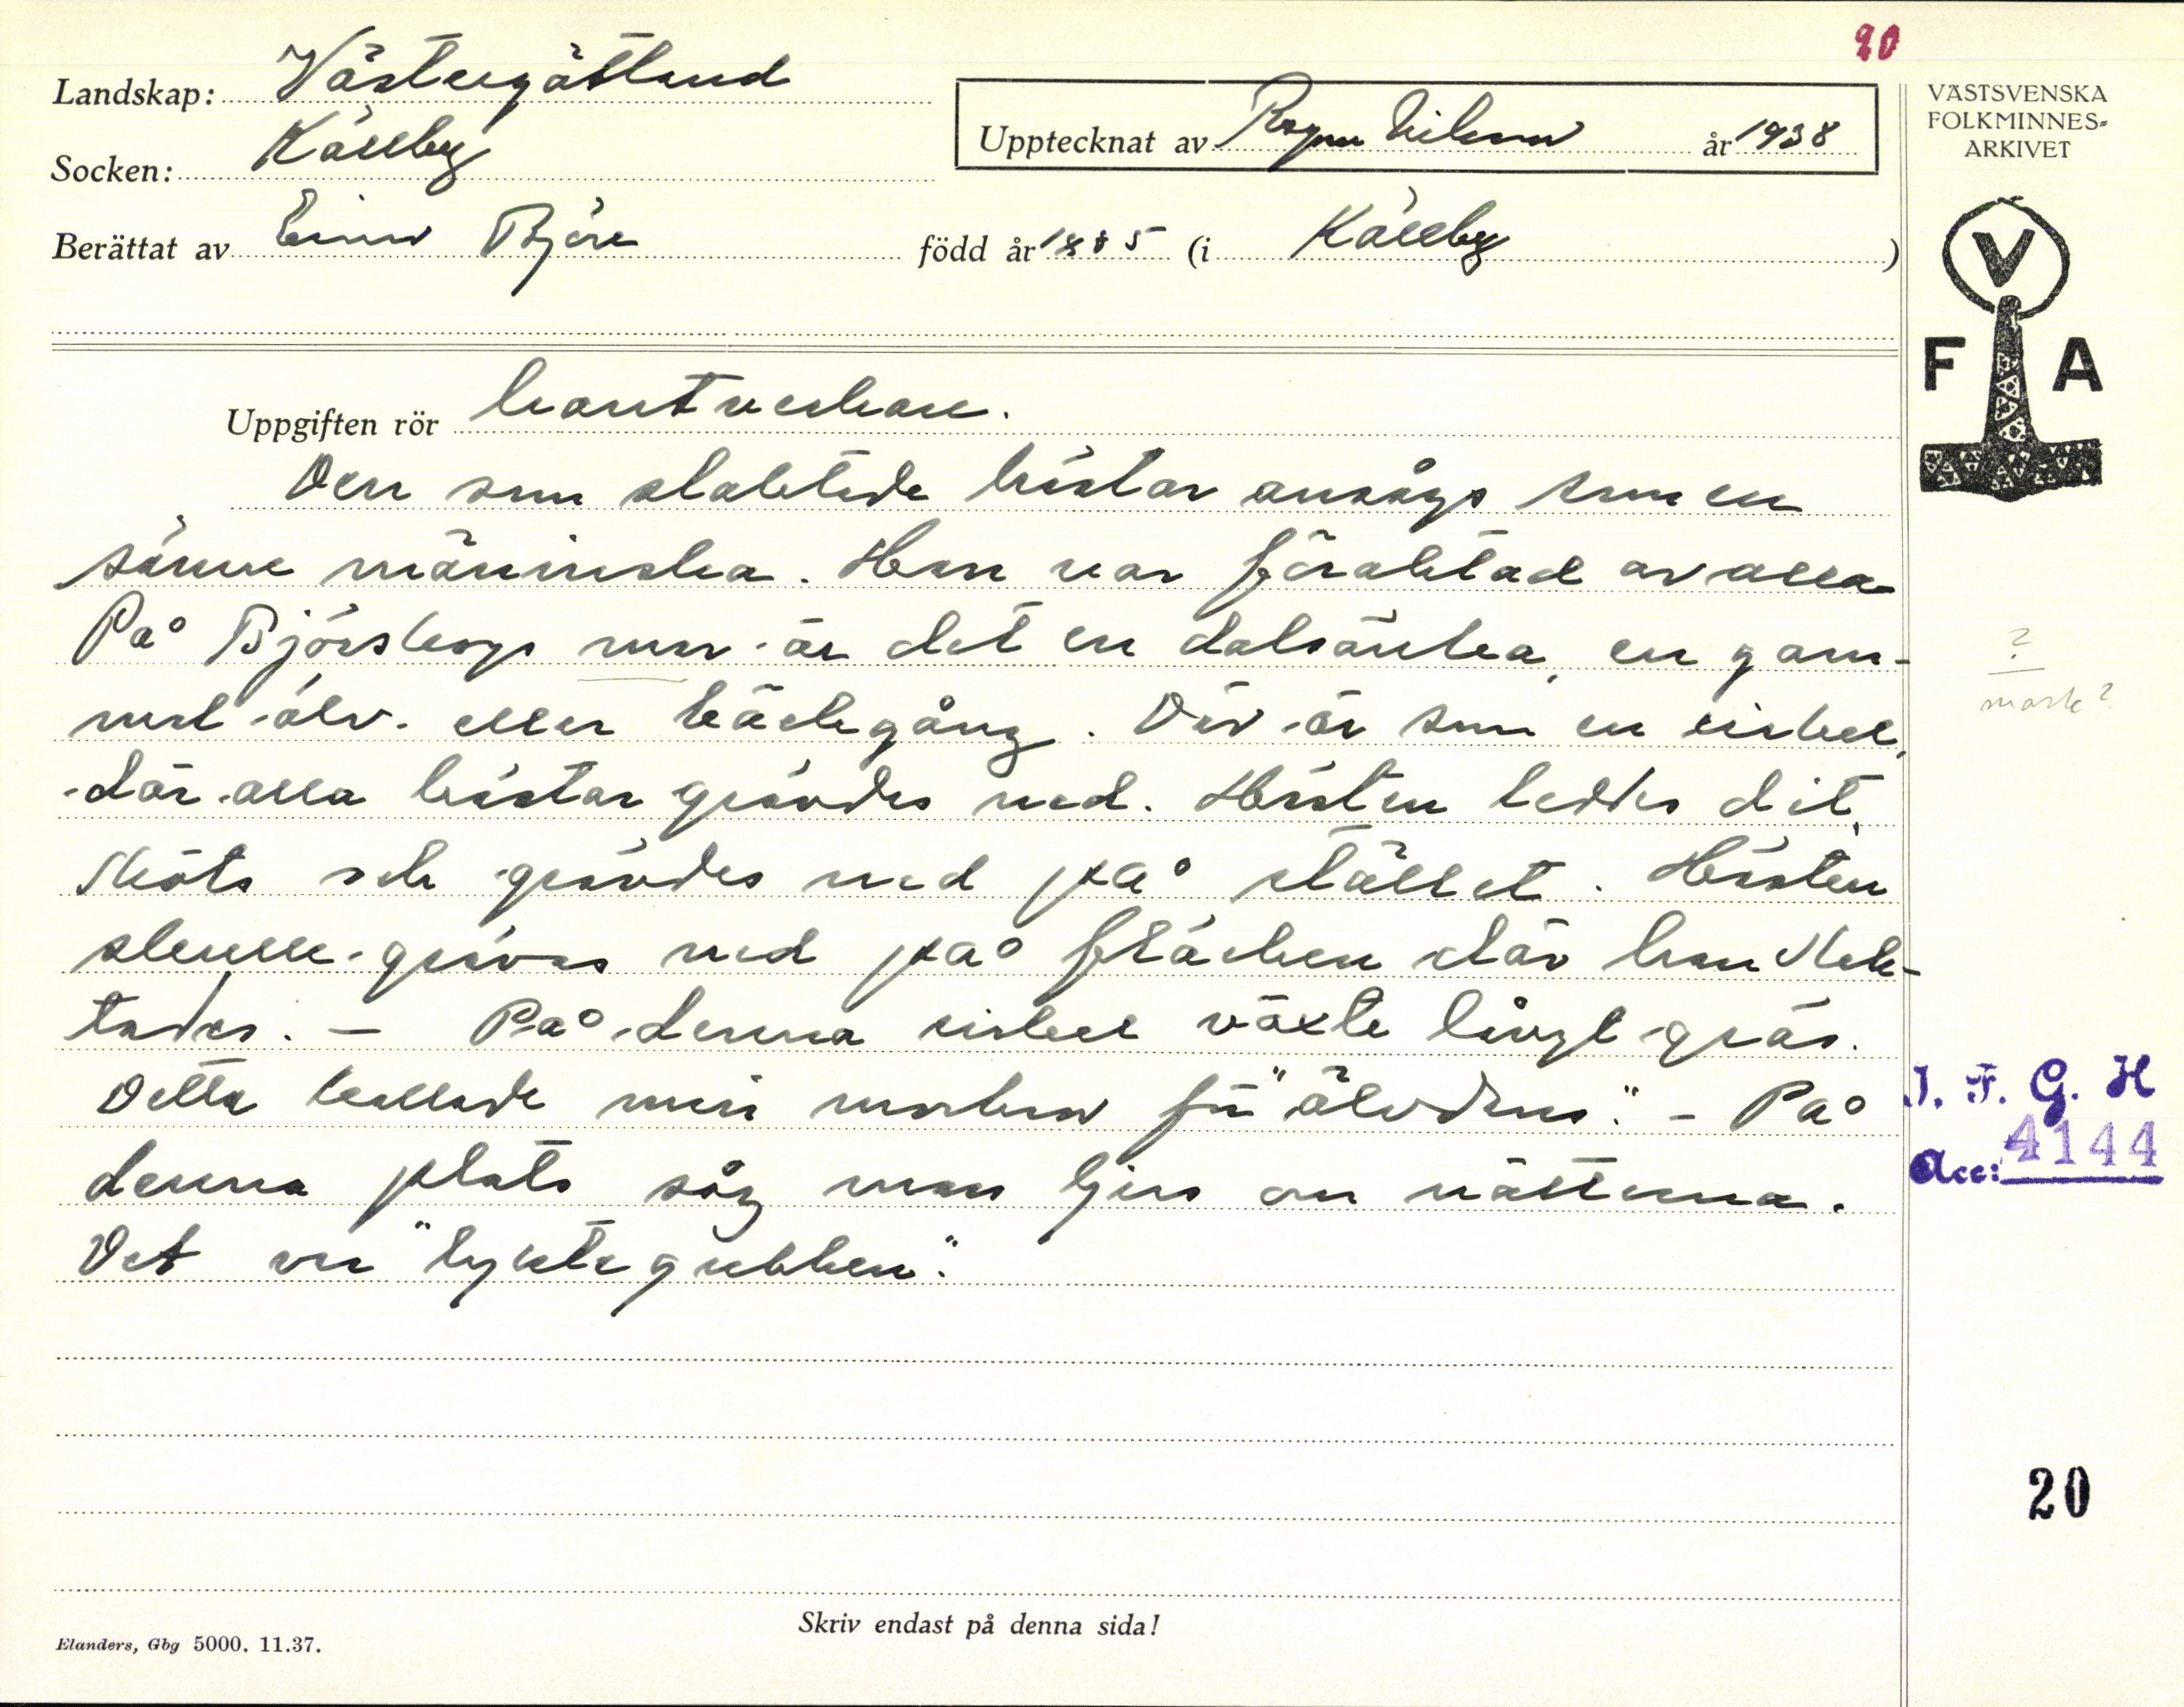 20
Landskap: Västergötland
Socken: Källby
Upptecknat av Ragnar Nilsson år 1938
Berättat av Einar Björe född år 1885 (i Källby)
VÄSTSVENSKA
FOLKMINNES=
ARKIVET
V
F A
Uppgiften rör hantverkare.
Den som slaktade hästar ansågs som en
sämre människa. Han var föraktad av alla
På Björskogs mor är det en dalsänka, en gam-
mal älv- eller bäckgång. Där är som en cirkel,
där alla hästar grävdes ned. Hästen leddes dit,
sköts och grävdes ned på stället. Hästen
skulle grävas ned på fläcken där han slak-
tades. – På denna cirkel växte långt gräs.
Detta kallade min morbror för "älvdans". – På
denna plats såg man ljus om nätterna.
Det var "lyktegubben".
?
mark?
I. F. G. H
Acc: 4144
20
Skriv endast på denna sida!
Elanders, Gbg 5000. 11.37.